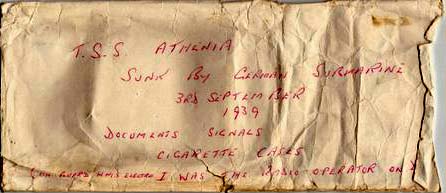 T.S.S ATHENIA
SUNK BY GERMAN SUBMARINE
3RD SEPTEMBER
1939
DOCUMENTS SIGNALS
CIGARETTE CASES
HMS ELECTRA I WAS THE RADIO OPERATOR ON)